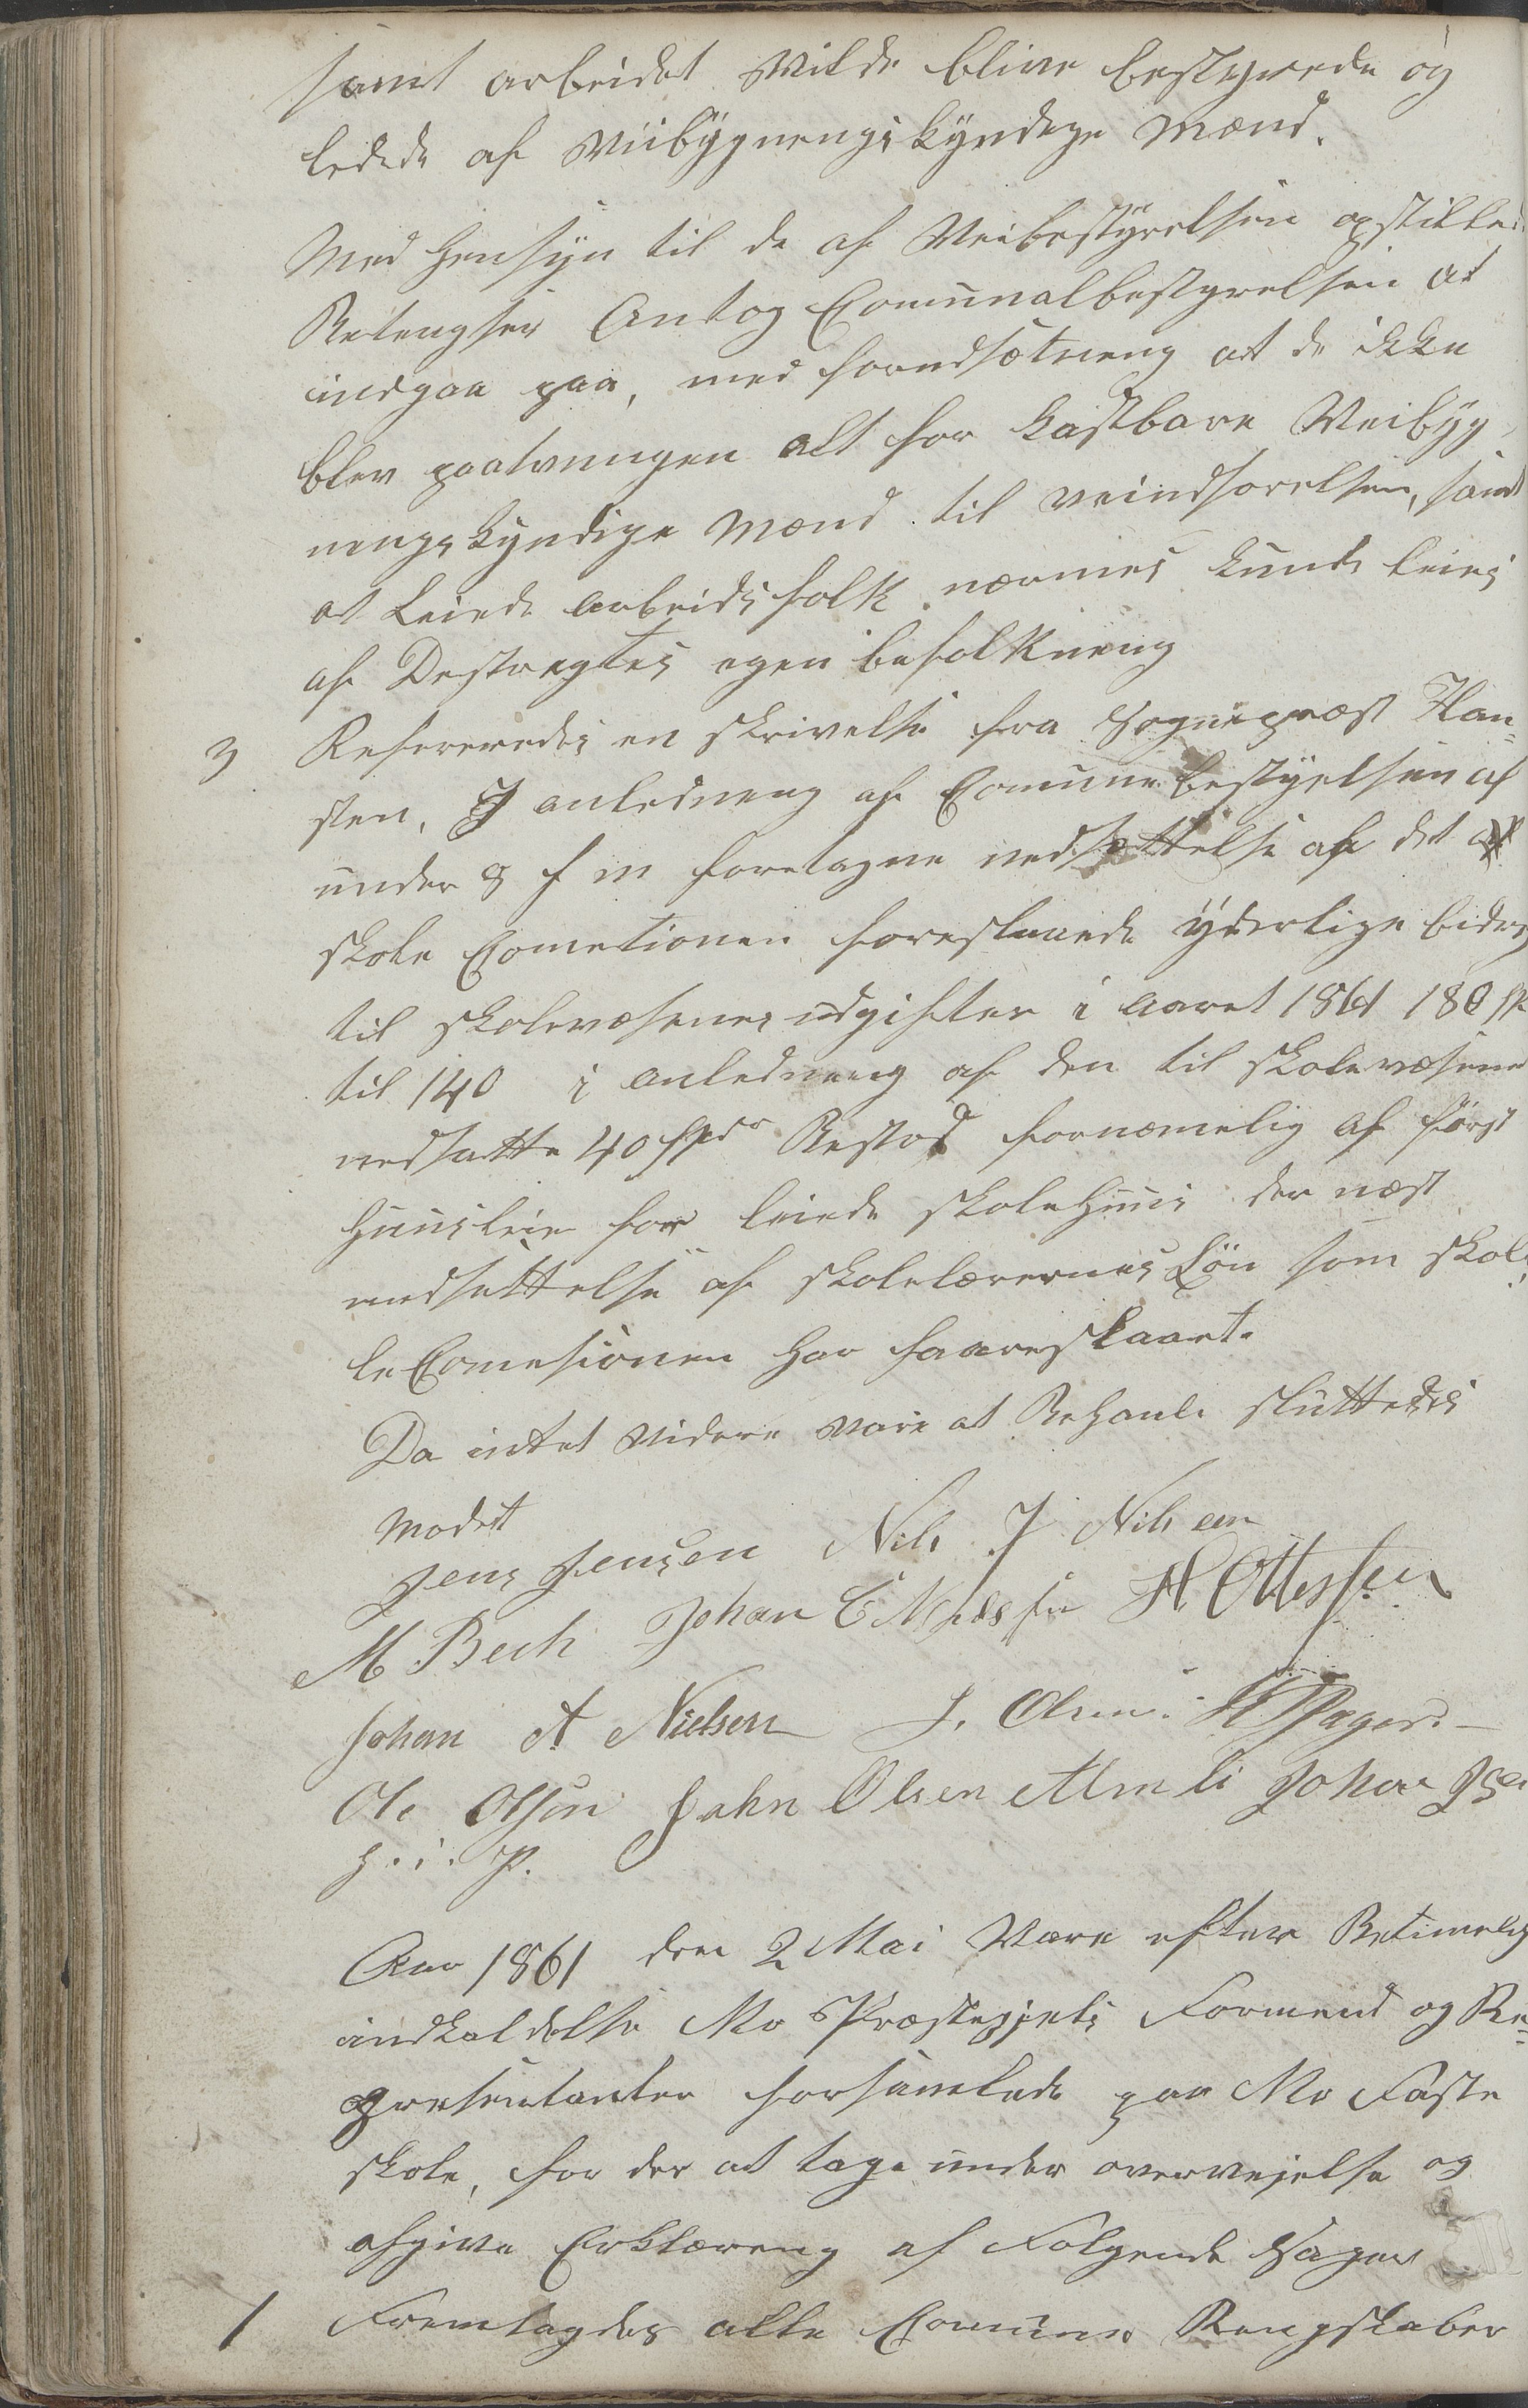 samt arbeidet Vilde blive bestyrede og
ledede af Veibygnengskyndege Mænd.
Med Hensyn til de af Veibestyrelsen opstilled
Betengser Antog Comunalbestyrelsen at
indgaa paa, med forudsætneng at de ikke
blev paatvungen alt for kostbare Veibyg
nengskyndige Mænd til veiindforelsen, samt
at Leiede arbeidsfolk nærmes kunde leies
af Destregtes egen befolkneng
3 Refereredes en skrivelse fra Sognepræst Han-
sten, I anledneng af Comunebestyelsen af
under 8 f m foretagne nedsættelse af det af
skole Cometionen foreslaaede yderlige bidrag
til skolevæsenes udgifter i Aaret 1861 180 sp
til 140 i anledneng af den til skolevæsene
nedsatte 40 spdr Bestod fornæmelig af først
Huusleie for leiede skolehuus der næst
nedsættelse af skolelærernes Løn som skol-
le Comesionen har faareslaaet.
Da intet videre vare at Behanle sluttedes
Modet
Jens Jensen Nils J Nilsen
M Bech Johan C Nilssen H. Ottessen
Johan A Nielsen J. Olsen.
Ole Olsen John Olsen Almli Johan
h. i. P.
Aar 1861 den 2 Mai Vare efter Betimelig
indkaldelse Mo Præstegjels Formend og Re-
presentanter forsamlede paa Mo Faste
skole, for der at tage under overvejelse og
afgive Erklæreng af Folgende Sager
1 Fremlagdes alle Comune Rengskaber